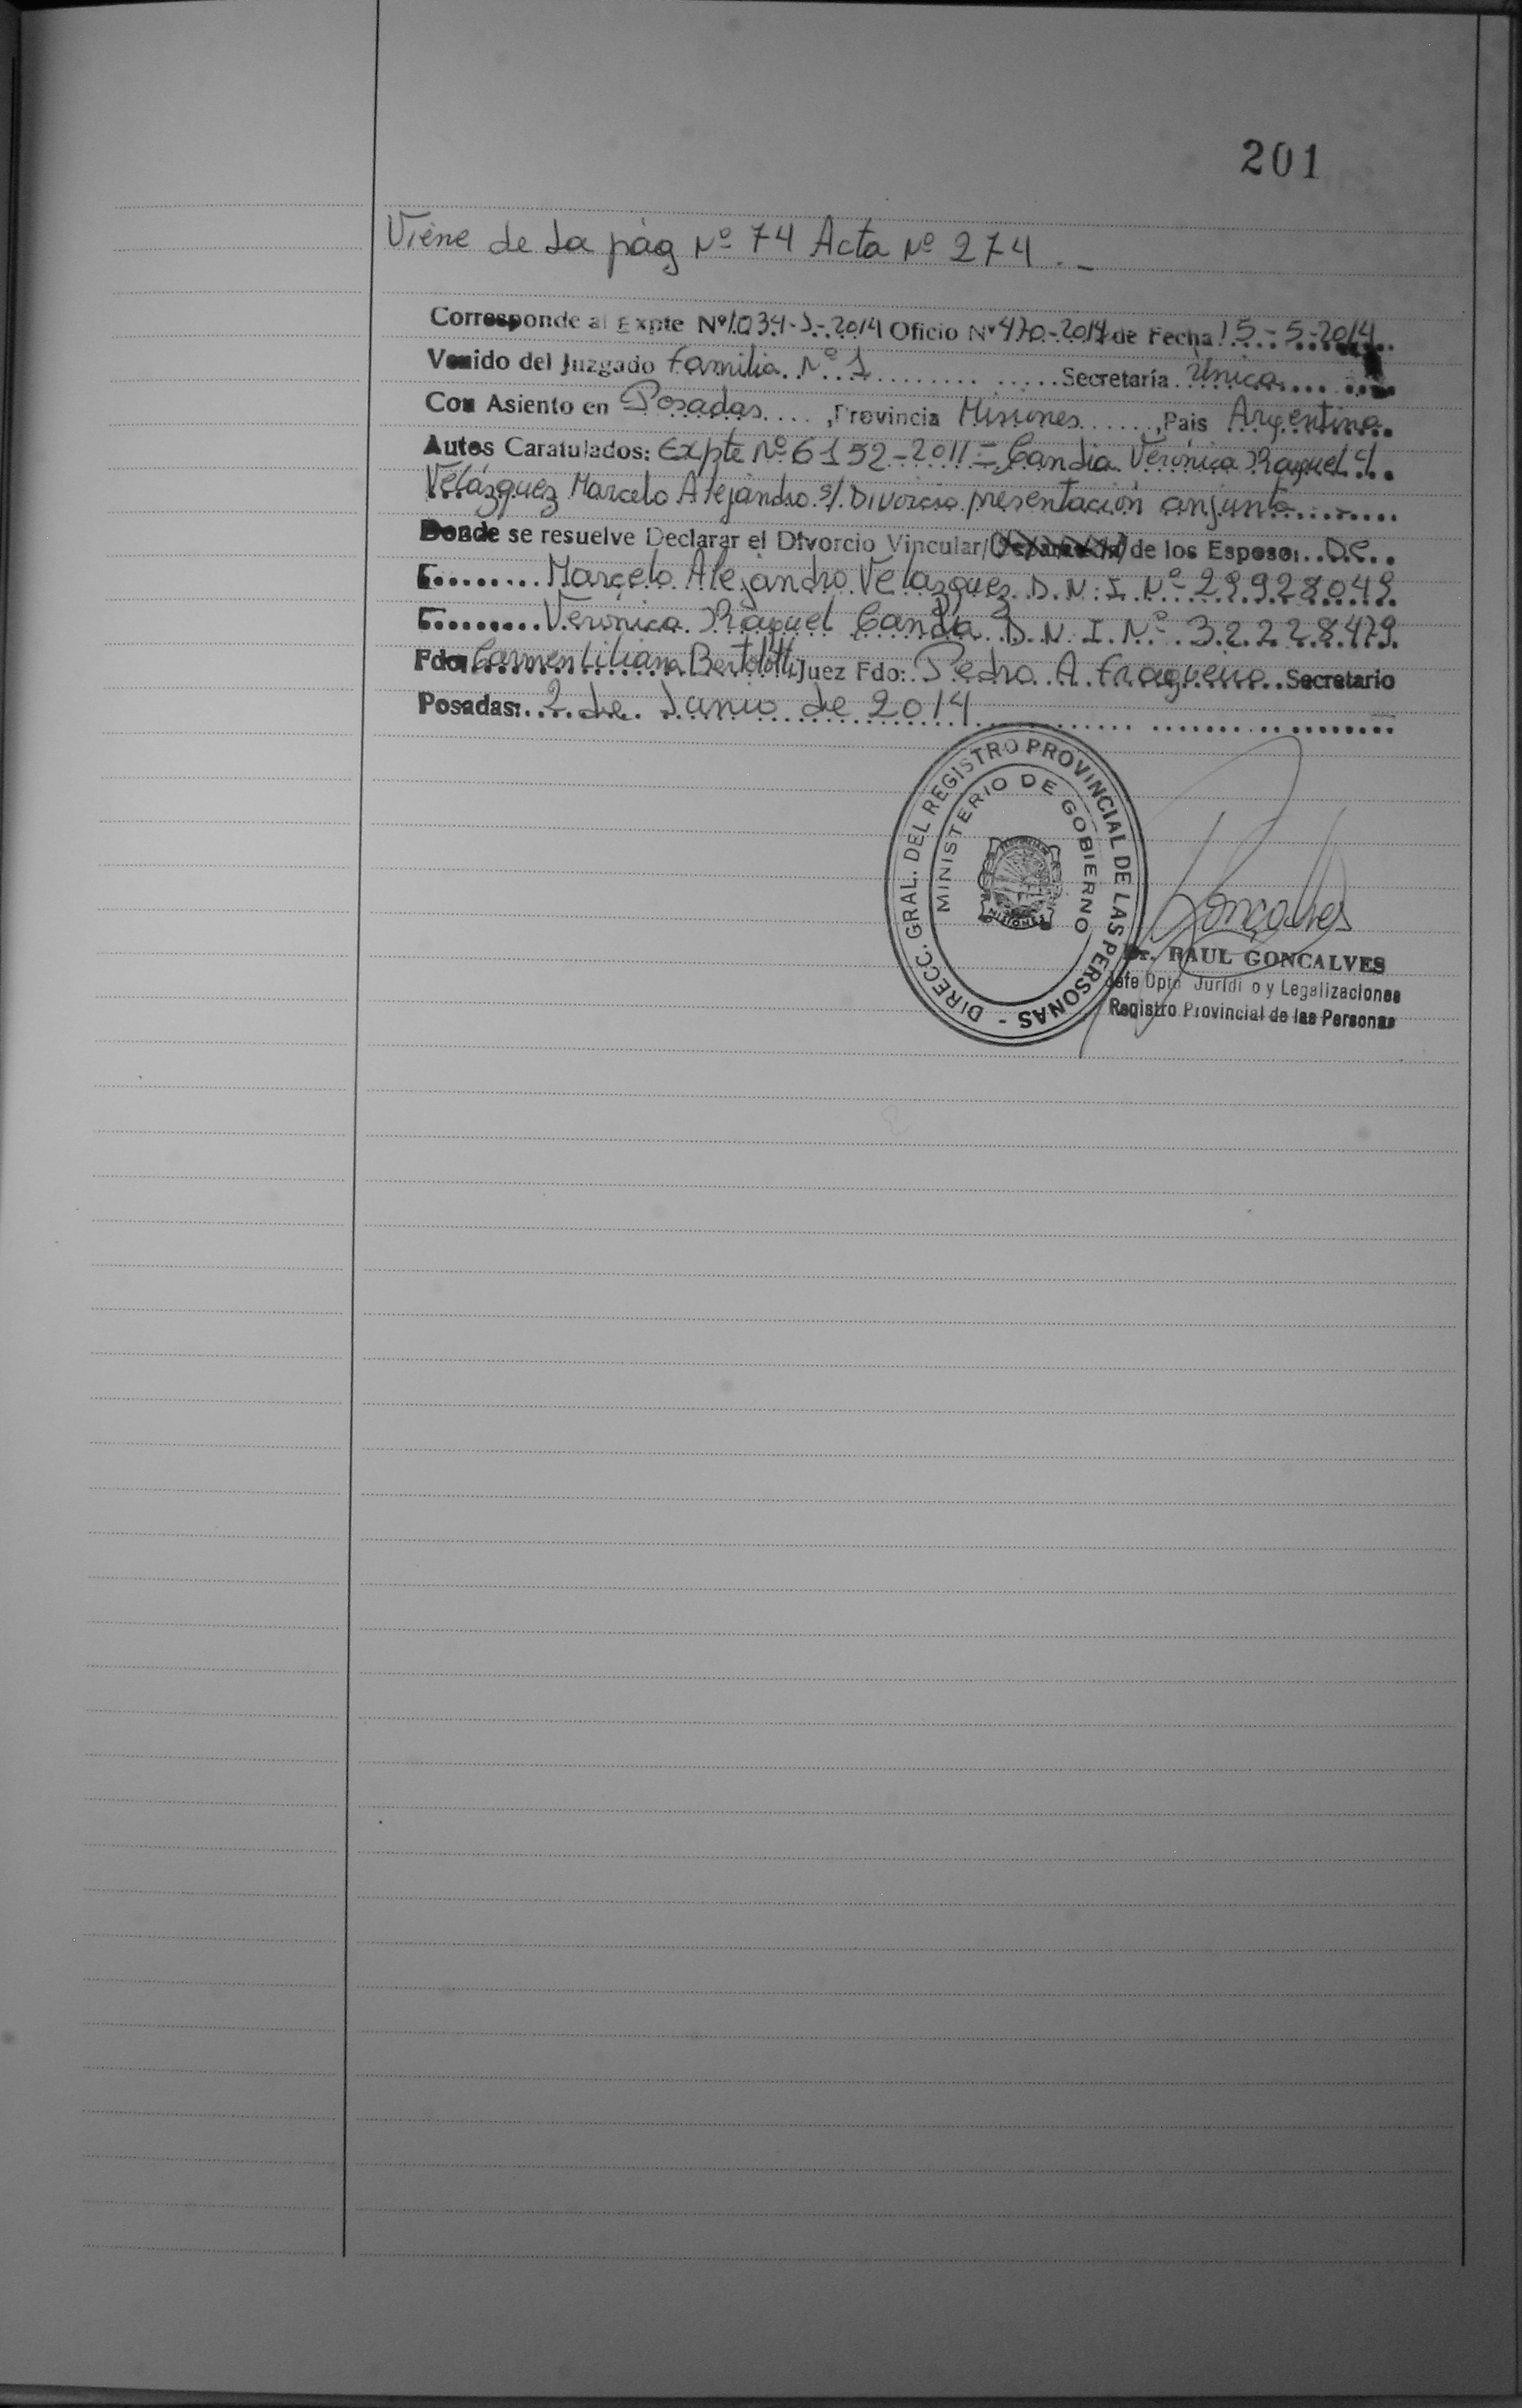 201
Viene de la pág Nº 74 Acta Nº 274.-
Corresponde al Expte Nº 1034-J-2014 Oficio Nº 470-2014 de Fecha 15-5-2014
Venido del Juzgado Familia Nº 1 Secretaría Única
Con Asiento en Posadas, Provincia Misiones, Pais Argentina
Autos Caratulados: Expte Nº 6152-2011 = Candia Verónica Raquel c/
Velázquez Marcelo Alejandro s/ Divorcio presentación conjunta
Donde se resuelve Declarar el Divorcio Vincular/ de los Esposos D.C.
Marcelo Alejandro Velazquez D.N.I. Nº 29.928.049
Verónica Raquel Candia D.N.I. Nº 32.228.479
Fdo Carmen Liliana Bertolotti Juez Fdo: Pedro A. Fragueiro Secretario
Posadas: 2 de Junio de 2014
DIRECC. GRAL. DEL REGISTRO PROVINCIAL DE LAS PERSONAS -
MINISTERIO DE GOBIERNO
MISIONES
Goncalves
Dr. RAUL GONCALVES
Jefe Dpto Juridi o y Legalizaciones
Registro Provincial de las Personas